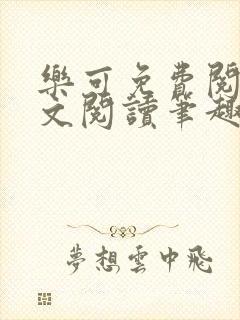 樂可免費閱
文閱讀筆趣
夢想雲中飛